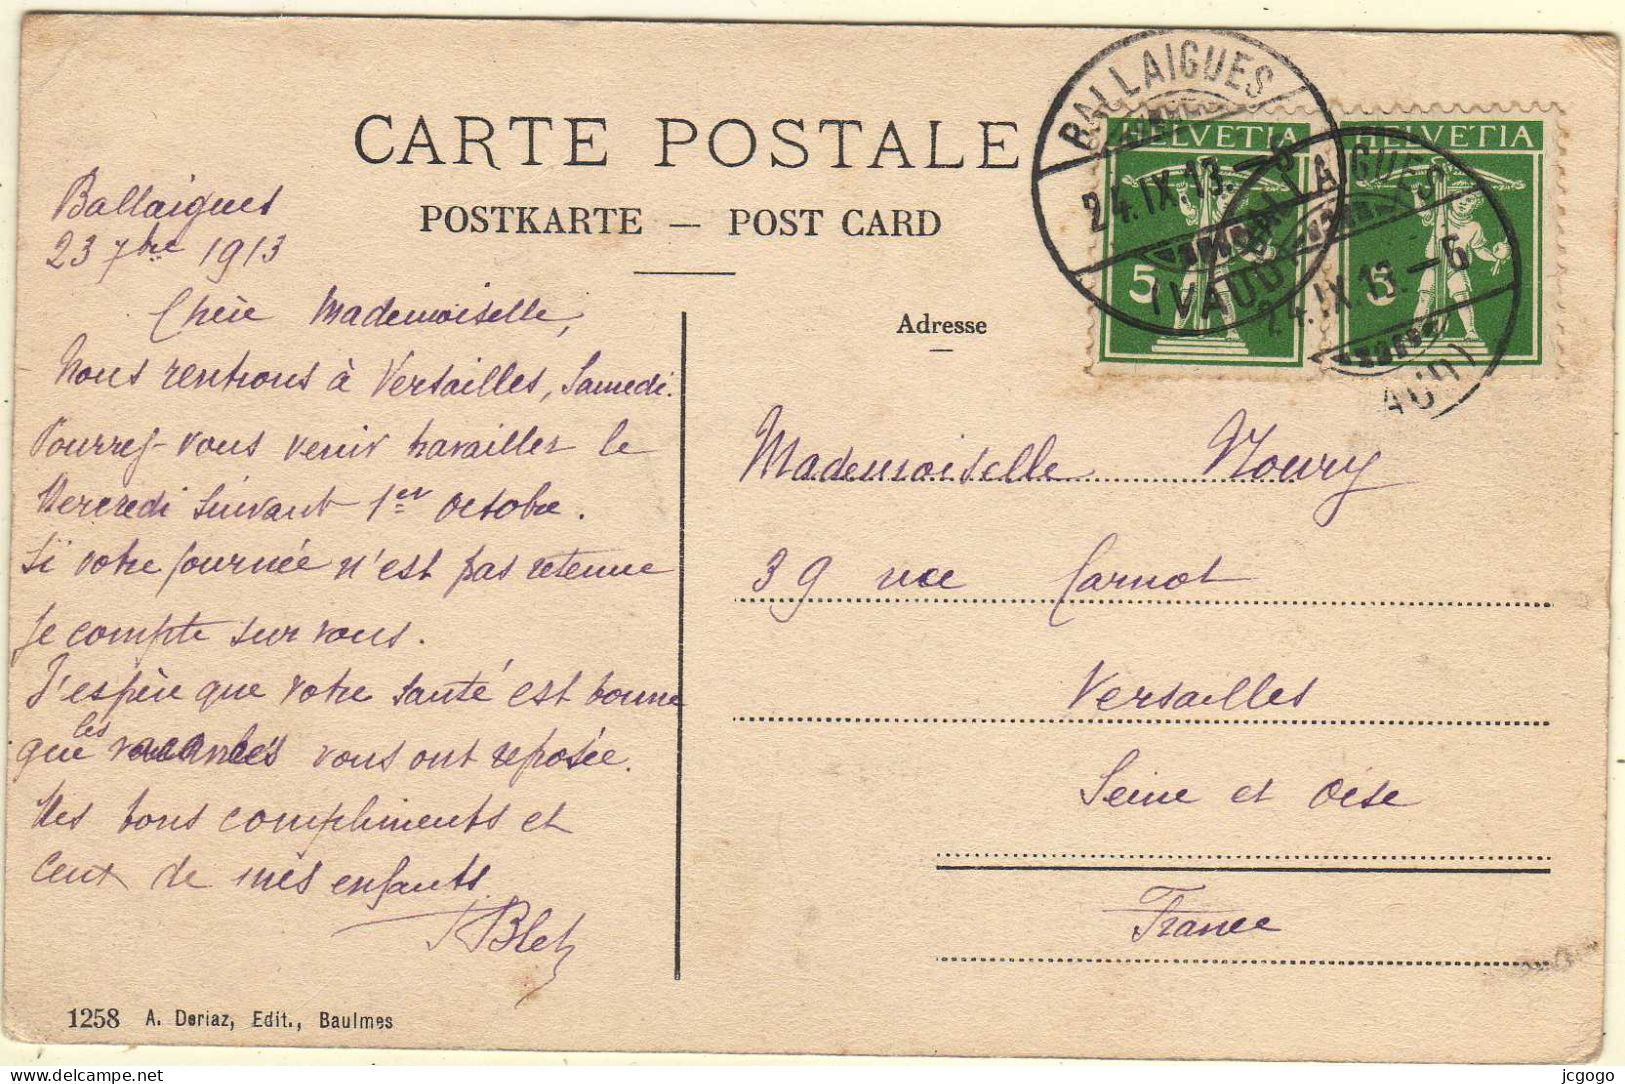 CARTE POSTALE
POSTKARTE — POST CARD
Ballaigues
23 7bre 1913
Chère Mademoiselle,
Nous rentrons à Versailles, Samedi.
Pourrez-vous venir travailler le
Mercredi suivant 1er octobre.
Si votre journée n'est pas retenue
je compte sur vous.
J'espère que votre santé est bonne
que les vacances vous ont reposée.
Mes bons compliments et
ceux de mes enfants.
Blet
1258 A. Deriaz, Edit., Baulmes
BALLAIGUES
24.IX.13.–6
(VAUD)
BALLAIGUES
24.IX.13.–6
(VAUD)
HELVETIA
5
HELVETIA
5
Adresse
Mademoiselle Noury
39 rue Carnot
Versailles
Seine et Oise
France
jcgogo